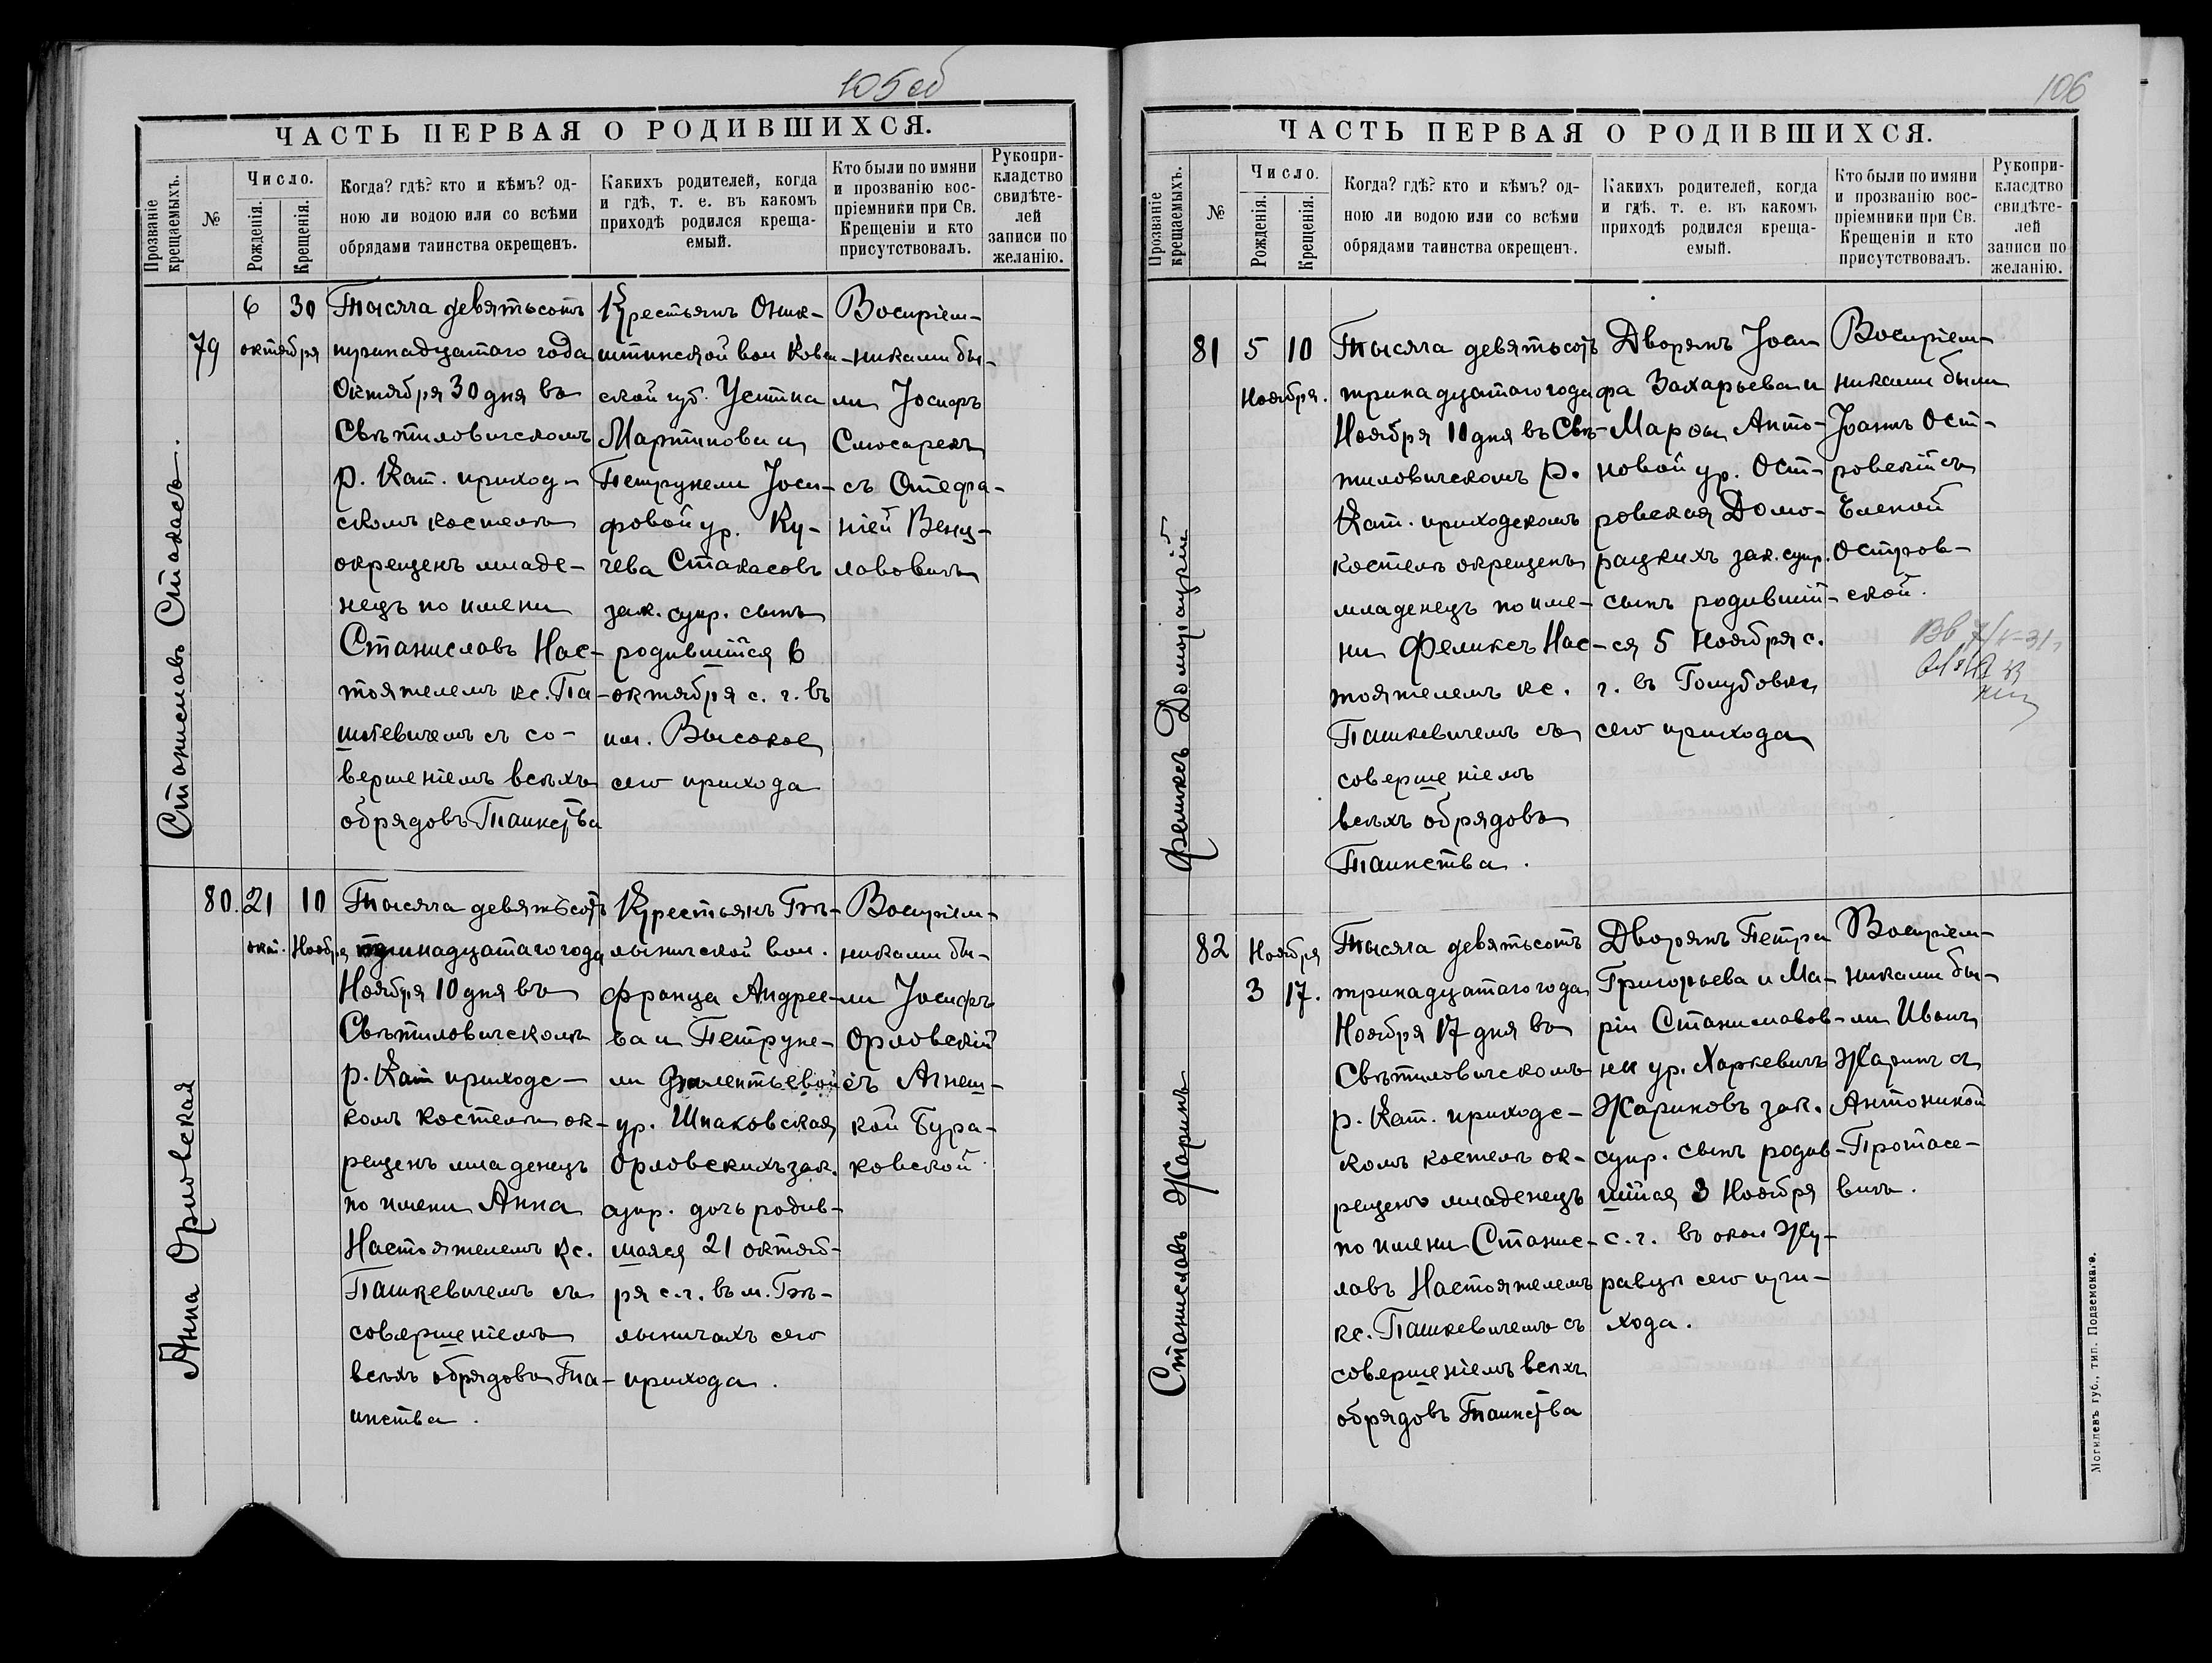 105 об
ЧАСТЬ ПЕРВАЯ О РОДИВШИХСЯ.
Прозваніе крещаемыхъ.
№
Число.
Рожденія.
Крещенія.
Когда? гдѣ? кто и кѣмъ? од-
ною ли водою или со всѣми
обрядами таинства окрещенъ.
Какихъ родителей, когда
и гдѣ, т. е. въ какомъ
приходѣ родился креща-
емый.
Кто были по имяни
и прозванію вос-
пріемники при Св.
Крещеніи и кто
присутствовалъ.
Рукопри-
кладство
свидѣте-
лей
записи по
желанію.
Станиславъ Стакасъ.
79
6 30
октября
Тысяча девятьсотъ
тринадцатаго года
Октября 30 дня въ
Свѣтиловичскомъ
р. Кат. приход-
скомъ костелѣ
окрещенъ младе-
нецъ по имени
Станиславъ Нас-
тоятелемъ кс. Па-
шкевичемъ съ со-
вершеніемъ всѣхъ
обрядовъ Таинства
Крестьянъ Оник-
штинской вол Ковен-
ской губ. Устина
Мартинова и
Петрунели Јоси-
фовой ур. Ку-
чева Стакасовъ
зак. супр. сынъ
родившійся 6
октября с. г. въ
им. Высокое
сего прихода
Воспріем-
никами бы-
ли Јосифъ
Слюсарекъ
съ Стефа-
ніей Венц-
лавовичъ
Анна Орловская
80.
21 10
окт. Ноября
Тысяча девятьсотъ
тринадцатаго года
Ноября 10 дня въ
Свѣтиловичскомъ
р. Кат приходс-
комъ костелѣ ок-
рещенъ младенецъ
по имени Анна
Настоятелемъ кс.
Пашкевичемъ съ
совершеніемъ
всѣхъ обрядовъ Та-
инства.
Крестьянъ Бѣ-
лыничской вол.
Франца Андрее-
ва и Петруне-
ли
ур. Шпаковская
Орловскихъ зак.
супр. дочь родив-
шаяся 21 октяб-
ря с.г. въ м. Бѣ-
лыничахъ сего
прихода.
Воспріем-
никами бы-
ли Јосифъ
Орловскій
съ Агнеш-
кой Бура-
ковской
106
ЧАСТЬ ПЕРВАЯ О РОДИВШИХСЯ.
Прозваніе крещаемыхъ.
№
Число.
Рожденія.
Крещенія.
Когда? гдѣ? кто и кѣмъ? од-
ною ли водою или со всѣми
обрядами таинства окрещенъ.
Какихъ родителей, когда
и гдѣ, т. е. въ какомъ
приходѣ родился креща-
емый.
Кто были по имяни
и прозванію вос-
пріемники при Св.
Крещеніи и кто
присутствовалъ.
Рукопри-
класдтво
свидѣте-
лей
записи по
желанію.
Феликсъ Доморацкій
81
5 10
Ноября.
Тысяча девятьсотъ
тринадцатаго года
Ноября 10 дня въ Свѣ-
тиловичскомъ р.
Кат. приходскомъ
костелѣ окрещенъ
младенецъ по име-
ни Феликсъ Нас-
тоятелемъ кс.
Пашкевичемъ съ
совершеніемъ
всѣхъ обрядовъ
Таинства.
Дворянъ Јоси
фа Захарьева и
Марѳы Анто-
новой ур. Ост-
ровская Домо-
рацкихъ зак. супр.
сынъ родившій-
ся 5 Ноября с.
г. въ Голубовки
сего прихода
Воспріем-
никами были
Јоаннъ Ост-
ровскій съ
Еленой
Остров-
ской.
Станиславъ Жаринъ
82
Ноября
3 17.
Тысяча девятьсотъ
тринадцатаго года
Ноября 17 дня въ
Свѣтиловичскомъ
р. Кат. приходс-
комъ костелѣ ок-
рещенъ младенецъ
по имени Станис-
лавъ Настоятелемъ
кс. Пашкевичемъ съ
совершеніемъ всѣхъ
обрядовъ Таинства
Дворянъ Петра
Григорьева и Ма-
ріи Станиславов-
ны ур. Харкевичъ
Жариновъ зак.
супр. сынъ родив-
шійся 3 Ноября
с. г. въ окол Жу-
равцы сего при-
хода.
Воспріем-
никами бы-
ли Иванъ
Жаринъ съ
Антониной
Протасе-
вичъ.
Могилевъ губ., тип. Подземскаго.